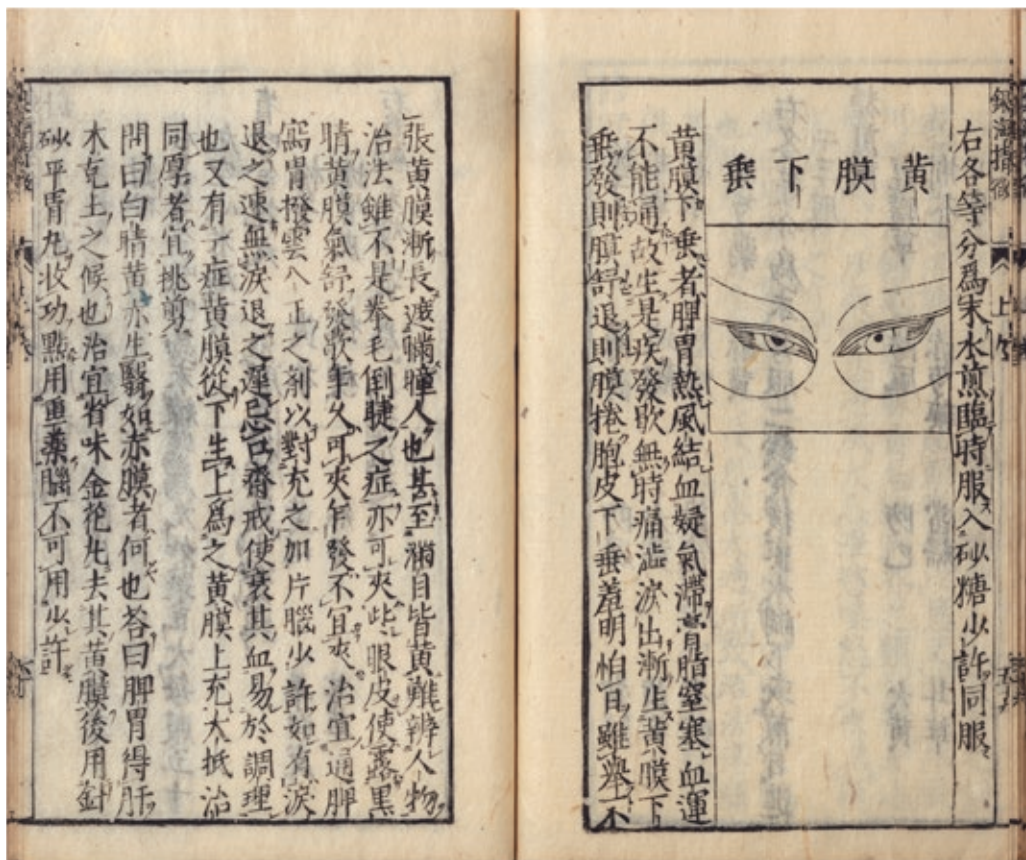 右各等分爲末水煎臨時服入砂糖少許同服
黃膜下垂
黃膜下垂者脾胃熱風結血凝氣滯膏脂窒塞血運
不能通故生是疾發歇無時痛澁淚出漸生黃膜下
垂發則膜舒退則膜捲胞皮下垂羞明怕日雖舉不
張黃膜漸長遮瞞瞳人也甚至滿目皆黃難辨人物
治法雖不是拳毛倒睫之症亦可夾些眼皮使露黑
睛黃膜氣舒發歇年久可夾乍發不宜夾治宜通脾
瀉胃撥雲八正之劑以對充之加片腦少許如有淚
退之速無淚退之遲忌口齋戒使衰其血易於調理
也又有一症黃膜從下生上爲之黃膜上充大抵治
同厚者宜挑剪
問曰白睛黃赤生翳如赤膜者何也荅曰脾胃得肝
木尅土之候也治宜省味金花丸去其黃膜後用針
砂平胃丸收功點用重藥腦不可用少許
銀海精微
上